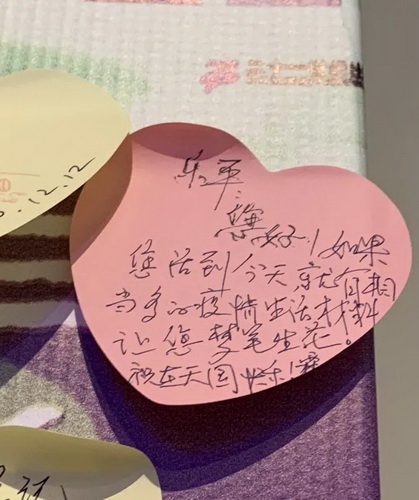 .12.12
乐平:
您好!如果
您活到今天就有相
当多的疫情生活材料
让您梦笔生花。
祝在天国快乐!